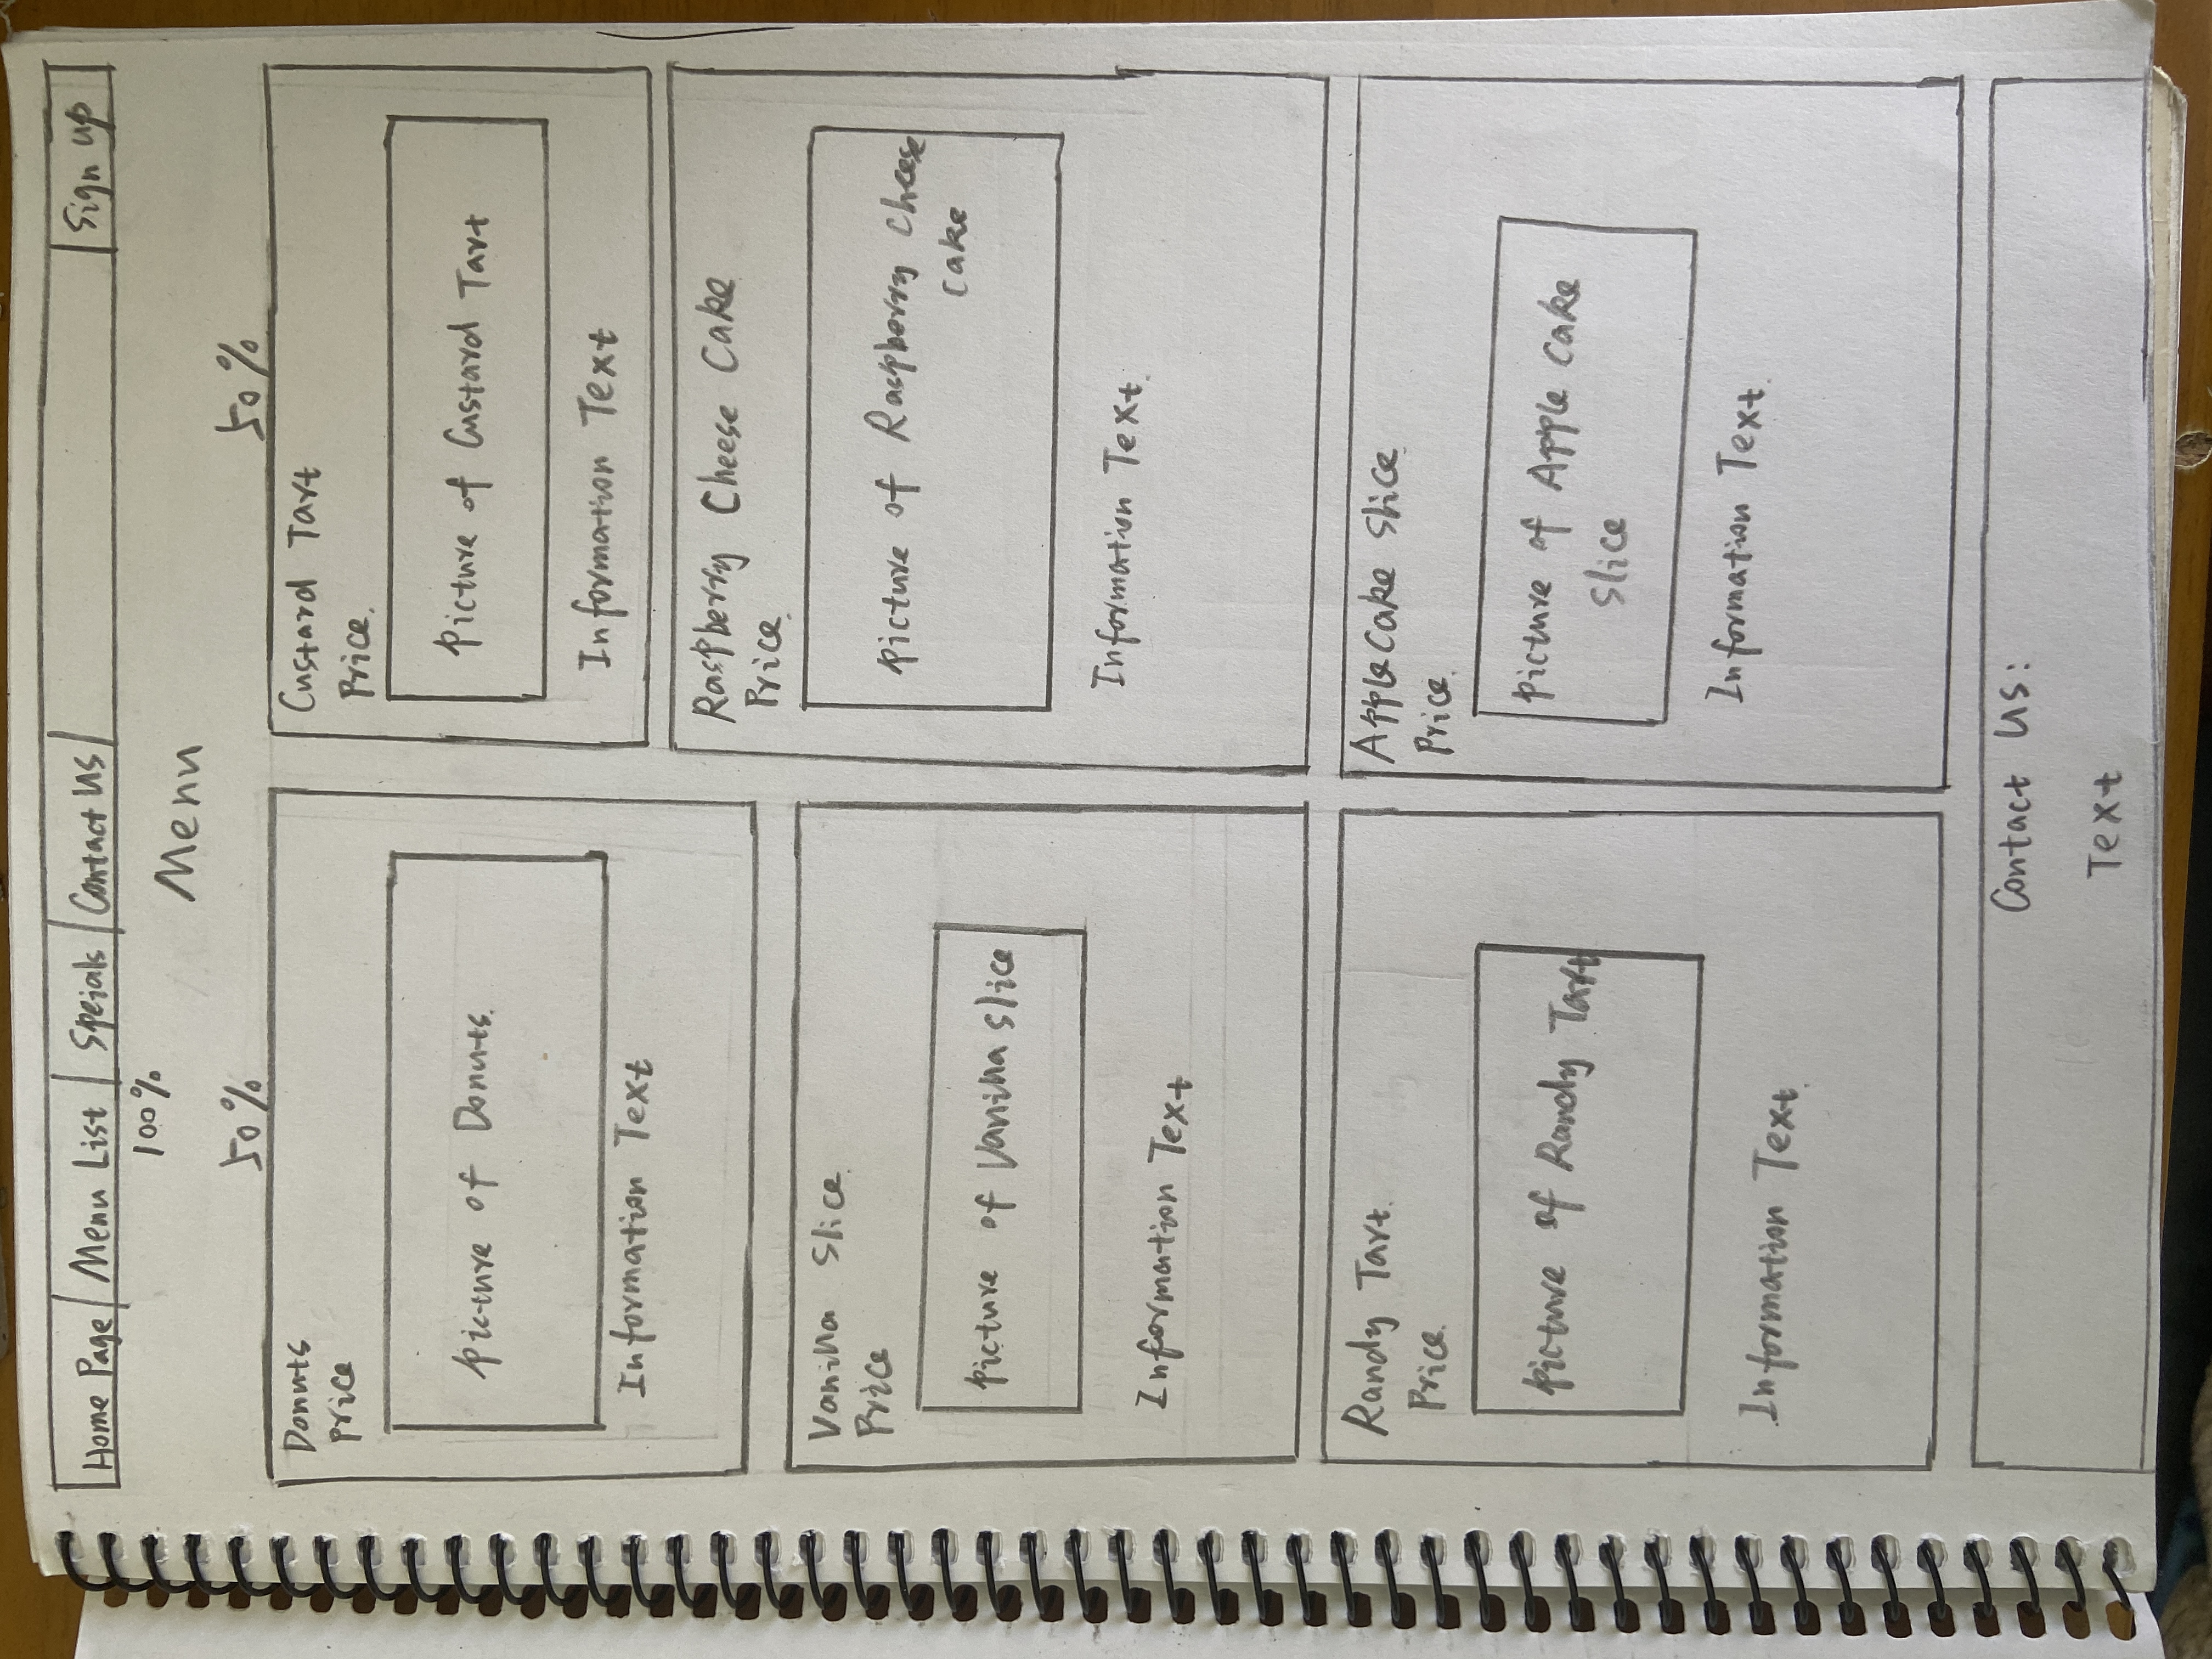 Home Page Menu List Speials Contact Us Sign up
100%
Menu
50% 50%
Donuts
Price
Picture of Donuts.
Information Text
Custard Tart
Price.
Picture of Custard Tart
Information Text
Vanilla Slice.
Price
Picture of Vanilla Slice
Information Text
Raspberry Cheese Cake
Price.
Picture of Raspberry Cheese
Cake
Information Text.
Randy Tart.
Price.
Picture of Randy Tart
Information Text.
Apple Cake Slice.
Price.
Picture of Apple Cake
Slice
Information Text.
Contact Us:
Text